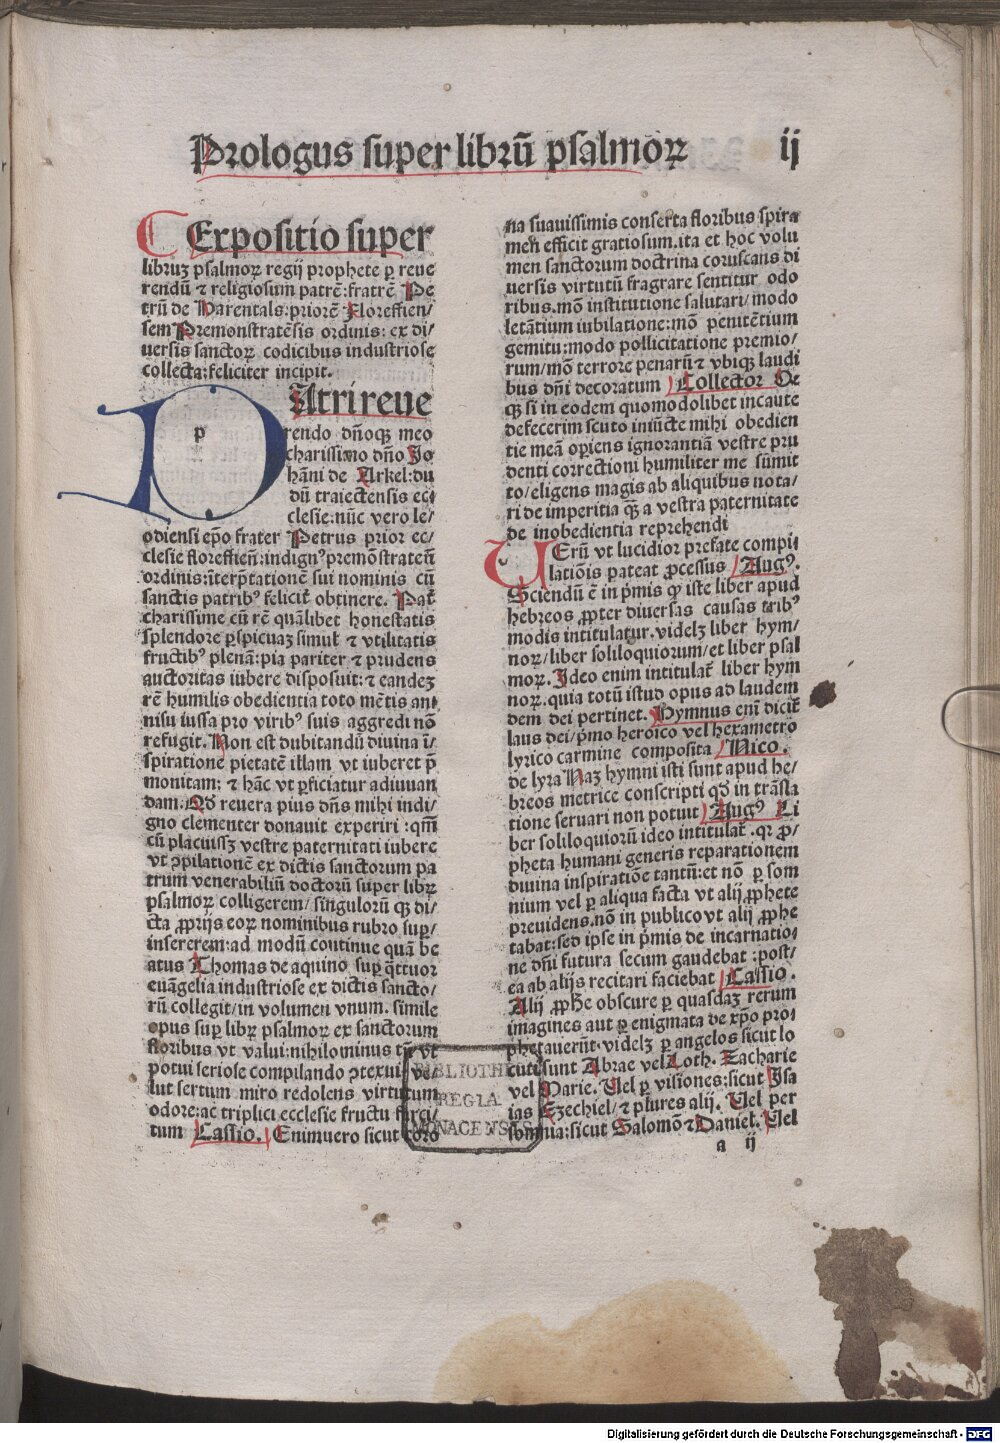 Prologus super librū psalmoꝝ ij
Expositio super
libruꝫ psalmoꝝ regij prophete ꝑ reue
rendū ⁊ religiosum patrē: fratrē Pe
trū de Harentals: priorē Floreffien/
sem Premonstratēsis ordinis: ex di/
uersis sanctoꝝ codicibus industriose
collecta: feliciter incipit.
p
Atri reue
rendo dñoqꝫ meo
charissimo dño Jo
hāni de Arkel: du
dū traiectensis ec/
clesie: nūc vero le/
odiensi epō frater Petrus prior ec/
clesie floreffieñ: indignꝰ premōstrateñ
ordinis: īterp̄tationē sui nominis cū
sanctis patribꝰ felicit̄ obtinere. Pat̄
charissime cū rē quālibet honestatis
splendore ꝑspicuaꝫ simul ⁊ vtilitatis
fructibꝰ plenā: pia pariter ⁊ prudens
auctoritas iubere disposuit: ⁊ eandeꝫ
rē humilis obedientia toto mētis ani
nisu iussa pro viribꝰ suis aggredi nō
refugit. Non est dubitandū diuina ī/
spiratione pietatē illam vt iuberet p̄
monitam: ⁊ hāc vt ꝑficiatur adiuuan
dam. Qd̄ reuera pius dñs mihi indi/
gno clementer donauit experiri: qm̄
cū placuissꝫ vestre paternitati iubere
vt ꝯpilationē ex dictis sanctorum pa
trum venerabiliū doctorū super libꝝ
psalmoꝝ colligerem/ singulorū qꝫ di/
cta ꝓprijs eoꝝ nominibus rubro suꝑ/
insererem: ad modū continue quā be
atus Thomas de aquino suꝑ q̄ttuor
euāgelia industriose ex dictis sancto/
rū collegit/ in volumen vnum. simile
opus suꝑ libꝝ psalmoꝝ ex sanctorum
floribus vt valui: nihilominus tn̄ vt
potui seriose compilando ꝯtexui. ve/
lut sertum miro redolens virtutum
odore: ac triplici ecclesie fructu farci/
tum Cassio. Enimuero sicut coro
na suauissimis conserta floribus spira
men efficit gratiosum. ita et hoc volu
men sanctorum doctrina coruscans di
uersis virtutū fragrare sentitur odo
ribus. mō institutione salutari/ modo
letātium iubilatione: mō penitētium
gemitu: modo pollicitatione premio/
rum/ mō terrore penarū ⁊ vbiqꝫ laudi
bus dñi decoratum Collector De
qꝫ si in eodem quomodolibet incaute
defecerim scuto iniūcte mihi obedien
tie meā oꝑiens ignorantiā vestre pru
denti correctioni humiliter me sūmit
to/ eligens magis ab aliquibus nota/
ri de imperitia qꝫ a vestra paternitate
de inobedientia reprehendi
Uerū vt lucidior prefate compi
lationis pateat ꝓcessus Augꝰ.
Sciendū ē in p̄mis qp iste liber apud
hebreos ꝓpter diuersas causas tribꝰ
modis intitulatur. videlꝫ liber hym/
noꝝ/ liber soliloquiorum/ et liber psal
moꝝ. Ideo enim intitulat̄ liber hym
noꝝ. quia totū istud opus ad laudem
dem dei pertinet. Hymnus enī dicit̄
laus dei/ p̄mo heroico vel hexametro
lyrico carmine composita Nico.
de lyra Naꝫ hymni isti sunt apud he/
breos metrice conscripti qd̄ in trāsla
tione seruari non potuit Augꝰ Li
ber soliloquiorū ideo intitulat̄. qꝛ ꝓ/
pheta humani generis reparationem
diuina inspiratiōe tantū: et nō ꝑ som
nium vel ꝑ aliqua facta vt alij ꝓphete
preuidens. nō in publico vt alij ꝓphe
tabat: sed ipse in p̄mis de incarnatio/
ne dñi futura secum gaudebat: post/
ea ab alijs recitari faciebat Cassio.
Alij ꝓphe obscure ꝑ quasdaꝫ rerum
imagines aut ꝑ enigmata de xp̄o pro/
phetauerūt. videlꝫ ꝑ angelos sicut lo
cuti sunt Abrae vel Loth. Zacharie
vel Marie. Uel ꝑ visiones: sicut Isa
ias Ezechiel/ ⁊ plures alij. Uel per
somnia: sicut Salomō ⁊ Daniel. Uel
a ij
BIBLIOTHECA
REGIA
MONACENSIS
Digitalisierung gefördert durch die Deutsche Forschungsgemeinschaft - DFG